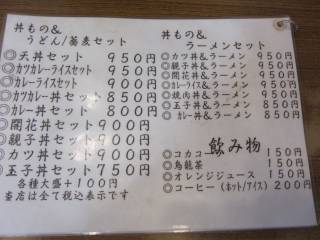 丼もの&
うどん/蕎麦セット
◎天丼セット 950円
◎カツカレーライスセット 950円
◎カレーライスセット 900円
◎カツカレー丼セット 850円
◎カレー丼セット 800円
◎開花丼セット 900円
◎親子丼セット 900円
◎カツ丼セット 900円
◎玉子丼セット 750円
各種大盛+100円
当店は全て税込表示です
丼もの&
ラーメンセット
◎カツ丼&ラーメン 950円
◎親子丼&ラーメン 950円
◎開花丼&ラーメン 950円
◎カレーライス&ラーメン 950円
◎焼肉丼&ラーメン 950円
◎玉子丼&ラーメン 850円
◎カレー丼&ラーメン 850円
飲み物
◎コカコ 150円
◎烏龍茶 150円
◎オレンジジュース 150円
◎コーヒー(ホット/アイス) 200円